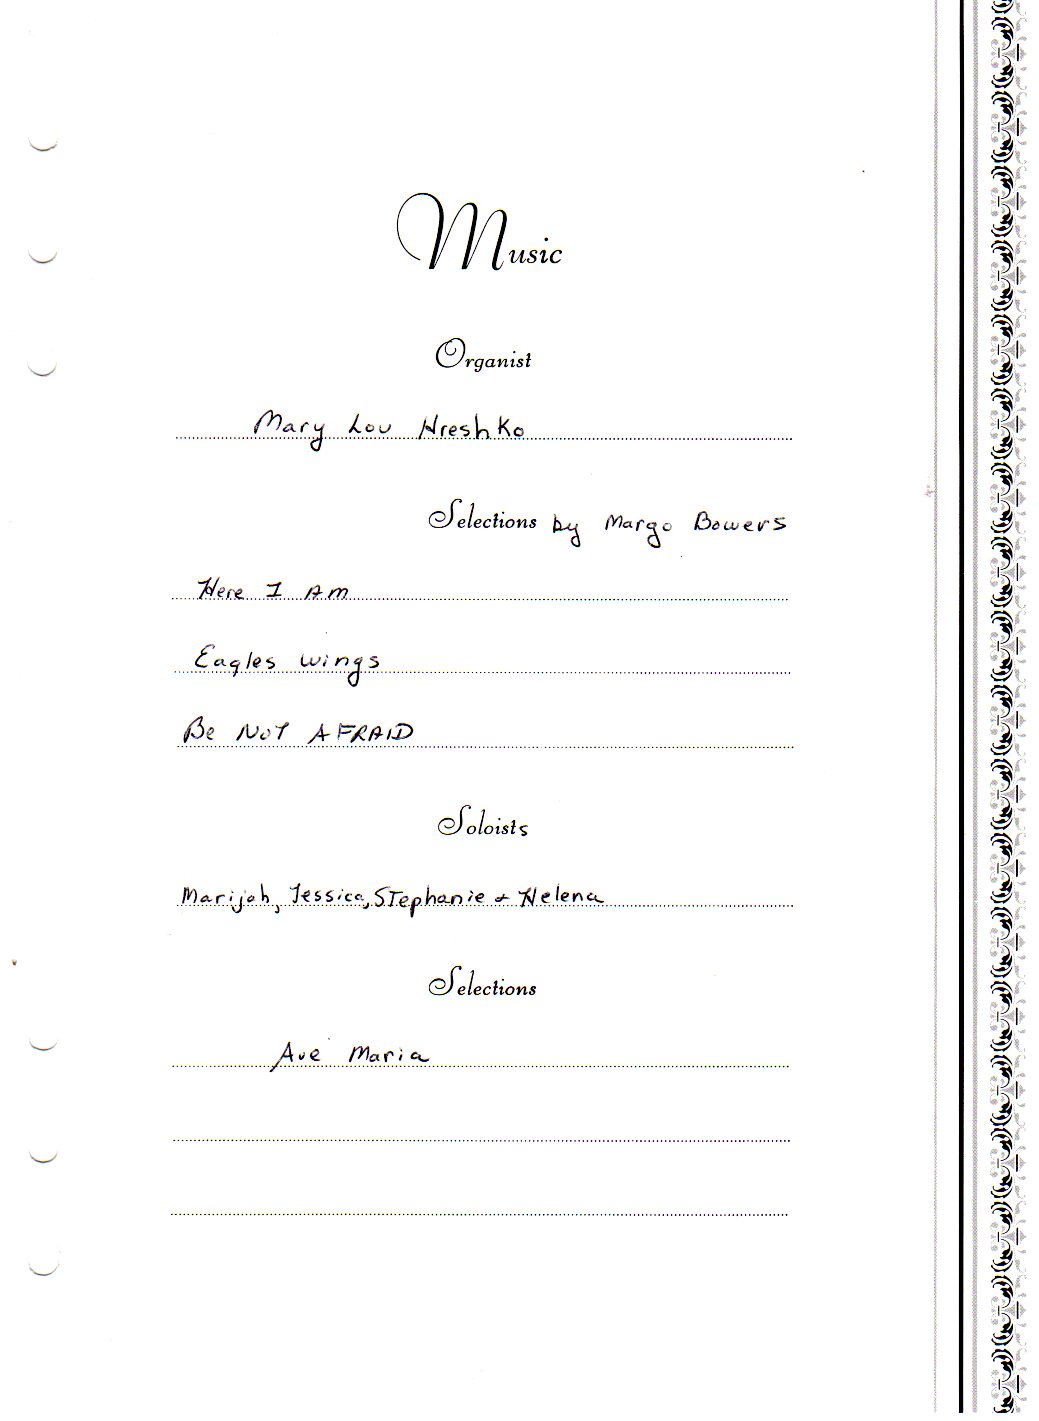 Music
Organist
Mary Lou Hreshko
Selections by Margo Bowers
Here I Am
Eagles wings
Be NOT AFRAID
Soloists
Marijah, Jessica, Stephanie & Helena
Selections
Ave Maria